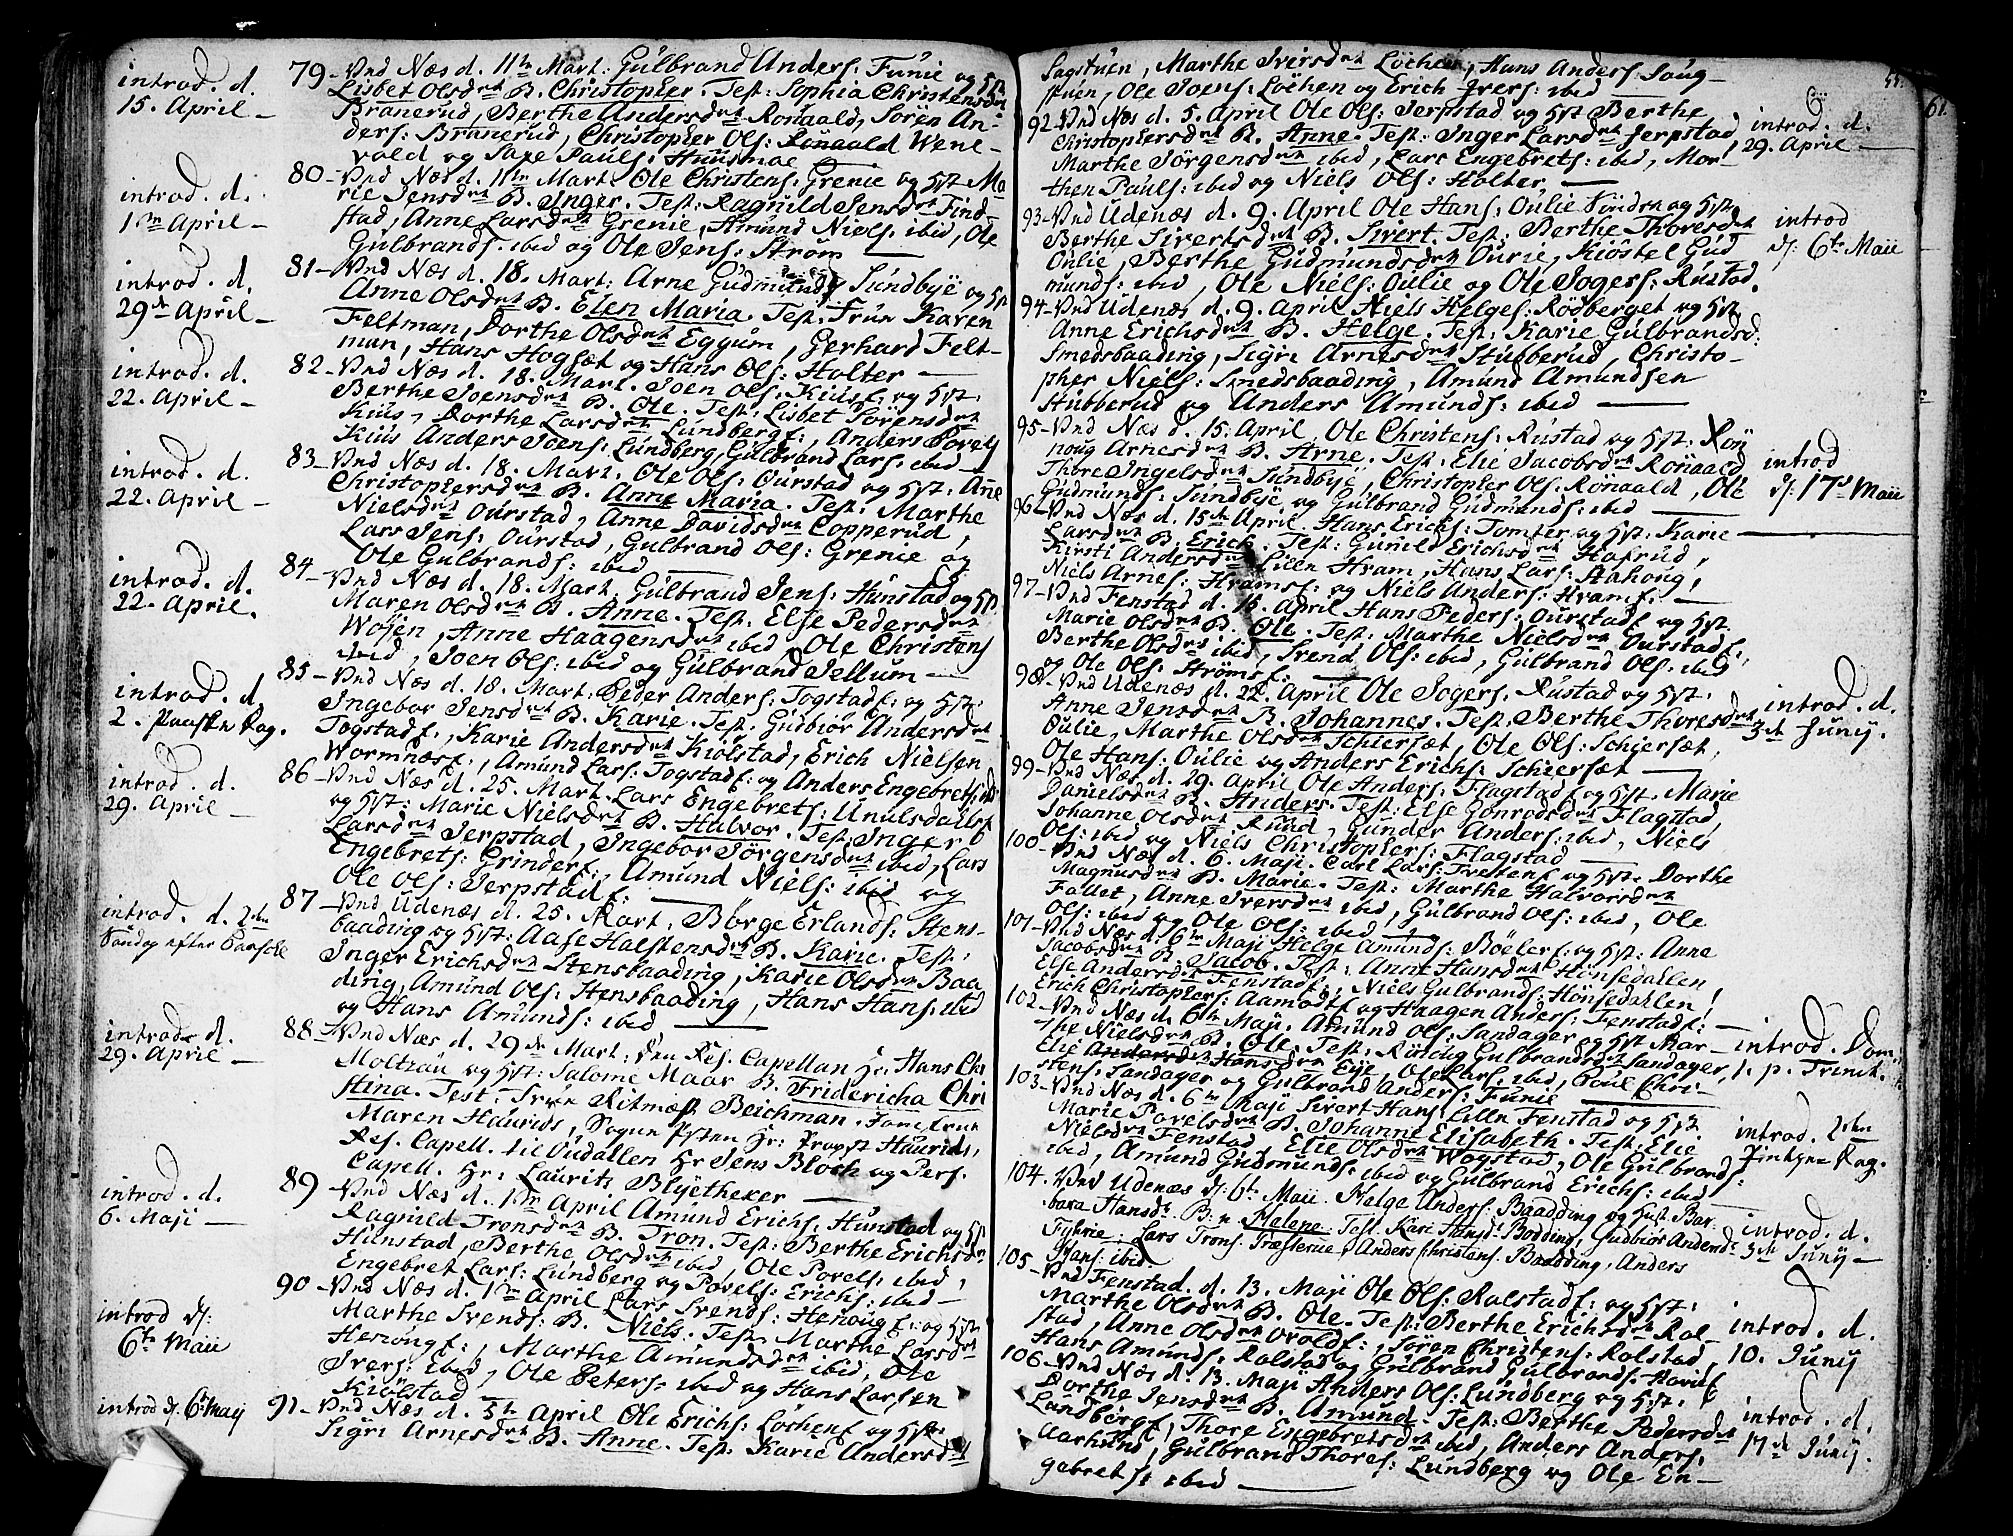 introd. d.
15. April —
79 – Vnd Næs d. 11te Mart: Gulbrand Anders: Funie og Hst:
Lisbet Olsdtr B. Christopher. Test: Sophia Christensdtr
Branerud, Berthe Andersdtr Ronaald, Søren An-
ders: Branerud, Christopher Ols: Ronaald Wene-
vold og Saxe Pauls: Huusmoe —
introd. d.
1te April —
80 – Vnd Næs d. 11te Mart. Ole Christens: Grenie og Hst Ma
rie Jensdtr B. Inger. Test: Ragnild Jensdtr Find-
stad, Anne Larsdtr Grenie, Amund Niels: ibid, Ole
Gulbrands: ibid og Ole Jens: Strøm —
introd. d.
29de April —
81 – Vnd Næs d. 18. Mart: Arne Gudmunds: Sundbye og Hst
Anne Olsdtr B. Elen Maria. Test: Frue Karen
Feltman, Dorthe Olsdtr Eggum, Gerhard Felt-
man, Hans Hogsæt og Hans Ols: Holter —
introd. d.
22. April —
82 – Vnd Næs d. 18. Mart. Joen Ols: Kiusf: og Hst:
Berthe Joensdtr B. Ole. Test: Lisbet Sørensdtr
Kius, Dorthe Larsdtr Lundbergf:, Anders Povels
Kius Anders Joens: Lundberg, Gulbrand Lars: ibid —
introd. d.
22. April —
83 – Vnd Næs d. 18. Mart. Ole Ols: Ourstad og Hst: Anne
Christophersdtr B. Anne Maria. Test: Marthe
Nielsdtr Ourstad, Anne Davidsdtr Copperud,
Lars Jens: Ourstad, Gulbrand Ols: Grenie og
Ole Gulbrands: ibid —
introd. d.
22. April.
84 – Vnd Næs d. 18. Mart: Gulbrand Jens: Hunstad og Hst.
Maren Olsdtr B. Anne. Test: Else Pedersdtr
Wojen, Anne Haagensdtr ibid, Ole Christens
ibid, Joen Ols: ibid og Gulbrand Jellum —
introd. d
2. Paaske Dag.
85 – Vnd Næs d. 18. Mart: Peder Anders: Togstadf: og Hst:
Ingebor Jensdtr B. Karie. Test: Gubiør Andersdtr
Togstadf:, Karie Andersdtr Kiølstad, Erich Nielsen
Wormnæsf:, Amund Lars: Togstadf: og Anders Engebrets: ibid
introd. d.
29. April —
86 – Vnd Næs d. 25. Mart. Lars Engebrets: Unulsdalsf
og Hst: Marie Nielsdtr B. Halvor. Test: Inger
Larsdtr Jerpstad, Ingebor Jørgensdtr ibid, Lars
Engebrets: Grinderf:, Amund Niels: ibid og
Ole Ols: Jerpstadf: —
introd. d. 2den
Søndag efter Paasche
87 – Vnd Udenæs d. 25. Mart. Børge Erlands: Stens-
baading og Hst: Aase Halstensdtr B. Karie. Test:
Inger Erichsdtr Stensbaading, Karie Olsdtr Baa
ding, Amund Ols: Stensbaading, Hans Hans: ibid
og Hans Amunds: ibid —
introd. d.
29. April —
88 – Vnd Næs d. 29de Mart: den Res. Capellan Hr: Hans Chr
Moltzau og Hst: Salome Maar B. Fridericha Chri
stina. Test: Frue Ritmest: Beichman, Jomfrue
Maren Haurids, Sogne Præsten Hr: Provst Haurids,
Res. Capell. til Oudallen Hr Jens Bloch og Pers.
Capell. Hr: Laurits Blyetheker —
introd. d.
6. Maji —
89 – Vnd Næs d. 1te April Amund Erichs: Hunstad og Hst
Ragnild Tronsdtr B. Tron. Test: Berthe Erichsdtr
Hunstad, Berthe Olsdtr ibid, Ole Povels: ibid,
Engebret Lars: Lundberg og Povels: Erichs: ibid —
introd d:
6te Maii
90 – Vnd Næs d. 1te April Lars Svends: Henougf: og Hst
Marthe Svends: B. Niels. Test: Marthe Larsdtr
Henougf:, Marthe Amundsdtr ibid, Ole
Ivers: ibid, Ole Peters: ibid og Hans Larsen
Kiølstad —
introd d: 6te Maij
91 – Vnd Næs d. 5te April Ole Erichs: Løchenf og Hst:
Sigri Arnesdtr B. Anne. Test: Karie Andersdtr
55.
61.
Sagstuen, Marthe Iversdtr Løchen, Hans Anders: Saug-
stuen, Ole Joens: Løchen og Erich Ivers: ibid —
92 – Vnd Næs d. 5. April Ole Ols: Jerpstad og Hst Berthe
Christophersdtr B. Anne. Test: Inger Larsdtr Jerpstad,
Marthe Jørgensdtr ibid, Lars Engebrets: ibid, Mor-
then Pauls: ibid og Niels Ols: Holter —
introd. d.
29. April —
93 – Vnd Udenæs d. 9. April Ole Hans: Oulie Søndre og Hst.
Berthe Sivertsdtr B. Sivert. Test: Berthe Thoresdtr
Oulie, Berthe Gudmundsdtr Ourie, Kiøstel Gud
munds: ibid, Ole Niels: Oulie og Ole Jogers: Rustad.
introd
d: 6te Maii
94 – Vnd Udenæs d. 9. April Niels Helges: Rødberget og Hst
Anne Erichsdtr B. Helge. Test: Karie Gulbrandsd:
Smedsbaading, Sigri Arnesdtr Stubberud, Christo-
pher Niels: Smedsbaading, Amund Amundsen
Stubberud og Anders Amunds: ibid —
95 – Vnd Næs d. 15. April, Ole Christens: Rustad og Hst: Røn
noug Arnesdtr B. Arne. Test: Elie Jacobsdtr Ronaald,
Thore Ingelsdtr Sundbye, Christopher Ols: Ronaald, Ole
Gudmunds: Sundbye og Gulbrand Gudmunds: ibid —
introd
d: 17de Maii
96 – Vnd Næs d. 15de April. Hans Erichs: Tomter og Hst: Karie
Larsdtr B. Erich. Test: Gunild Erichsdtr Hafrud,
Kirsti Andersdtr Lille Hram, Hans Lars: Aahoug,
Niels Arnes: Hramsf: og Niels Anders: Hramf: —
97 – Vnd Fenstad d. 16. April Hans Peders: Ourstadf: og Hst.
Marie Olsdtr B. Ole. Test: Marthe Nielsdtr Ourstadf:,
Berthe Olsdtr ibid, Trend Ols: ibid, Gulbrand Ols: ibid
og Ole Ols: Strømsf: —
98 – Vnd Udenæs d. 22. April Ole Jogers: Rustad og Hst:
Anne Jensdtr B. Johannes. Test: Berthe Thoresdtr
Oulie, Marthe Olsdtr Schiersæt, Ole Ols: Schiersæt,
Ole Hans: Oulie og Anders Erichs: Schiersæt —
introd. d.
3de Junij.
99 – Vnd Næs d. 29. April Ole Anders: Flagstadf og Hst. Marie
Danielsdtr B. Anders. Test: Else Gonrodsdtr Flagstad,
Johanne Olsdtr Ruud, Gunder Anders: ibid, Niels
Ols: ibid og Niels Christophers: Flagstad —
100 – Vnd Næs d. 6. Maji. Carl Lars: Trestenf og Hst. Dorthe
Magnusdtr B. Marie. Test: Marthe Halvorsdtr
Fallet, Anne Iversdtr ibid, Gulbrand Ols: ibid, Ole
Ols: ibid og Ole Ols: ibid —
101 – Vnd Næs d. 6te Maji Helge Amunds: Bøelerf: og Hst: Anne
Jacobsdtr B. Jacob. Test: Anne Hansdtr Hønsedallen,
Else Andersdtr Fenstadf:, Niels Gulbrands: Hønsedallen,
Erich Christophers: Aamodtf og Haagen Anders: Fenstadf: —
102 – Vnd Næs d. 6te Maji. Amund Ols: Sandager og Hst Mar-
the Nielsdtr B. Ole. Test: Rønnug Gulbrandsdtr Sandager,
Elie Andersdtr Hansdtr Eye, Ole Lars: ibid, Poul Chri-
stens: Sandager og Gulbrand Anders: Funie —
introd. Dom.
1. p. Trinit.
103 – Vnd Næs d. 6te Maji Sivert Hans: Lille Fenstad og Hst
Marie Povelsdtr B. Johanne Elisabeth. Test: Elie
Nielsdtr Fenstad, Elie Olsdtr Wogstad, Ole Gulbrands:
ibid, Amund Gudmunds: ibid og Gulbrand Erichs: ibid —
introd. 2den
Pintzse Dag.
104. Vnd Udenæs d: 6te Maii. Helge Anders: Baadding og Hust. Bar-
bara Hansdr. B. n. Malene. Test. Kari Hansdr Bodding, Gudbiør Andersdr
Fyhrie. Lars Trons: Træsterue, Anders Christens: Baadding, Anders
Hans: ibid.
introd. d.
3de Junij —
105 – Vnd Fenstad. d. 13. Maji Ole Ols: Ralstadf: og Hst:
Marthe Olsdtr B. Ole. Test: Berthe Erichsdtr Ral-
stad, Anne Olsdtr Ovoldf:, Søren Christens: Ralstad,
Hans Amunds: Ralstad og Gulbrand Gulbrands: Haviuf
introd. d.
10. Junij
106 – Vnd Næs d. 13. Maji Anders Ols: Lundberg og Hst:
Dorthe Jensdtr B. Amund. Test: Berthe Pedersdtr
Lundbergf, Thore Engebretsdtr ibid, Anders Anders:
Aarhund, Gulbrand Thores: Lundberg og Ole En-
gebrets: ibid —
introd. d.
17de Junij.